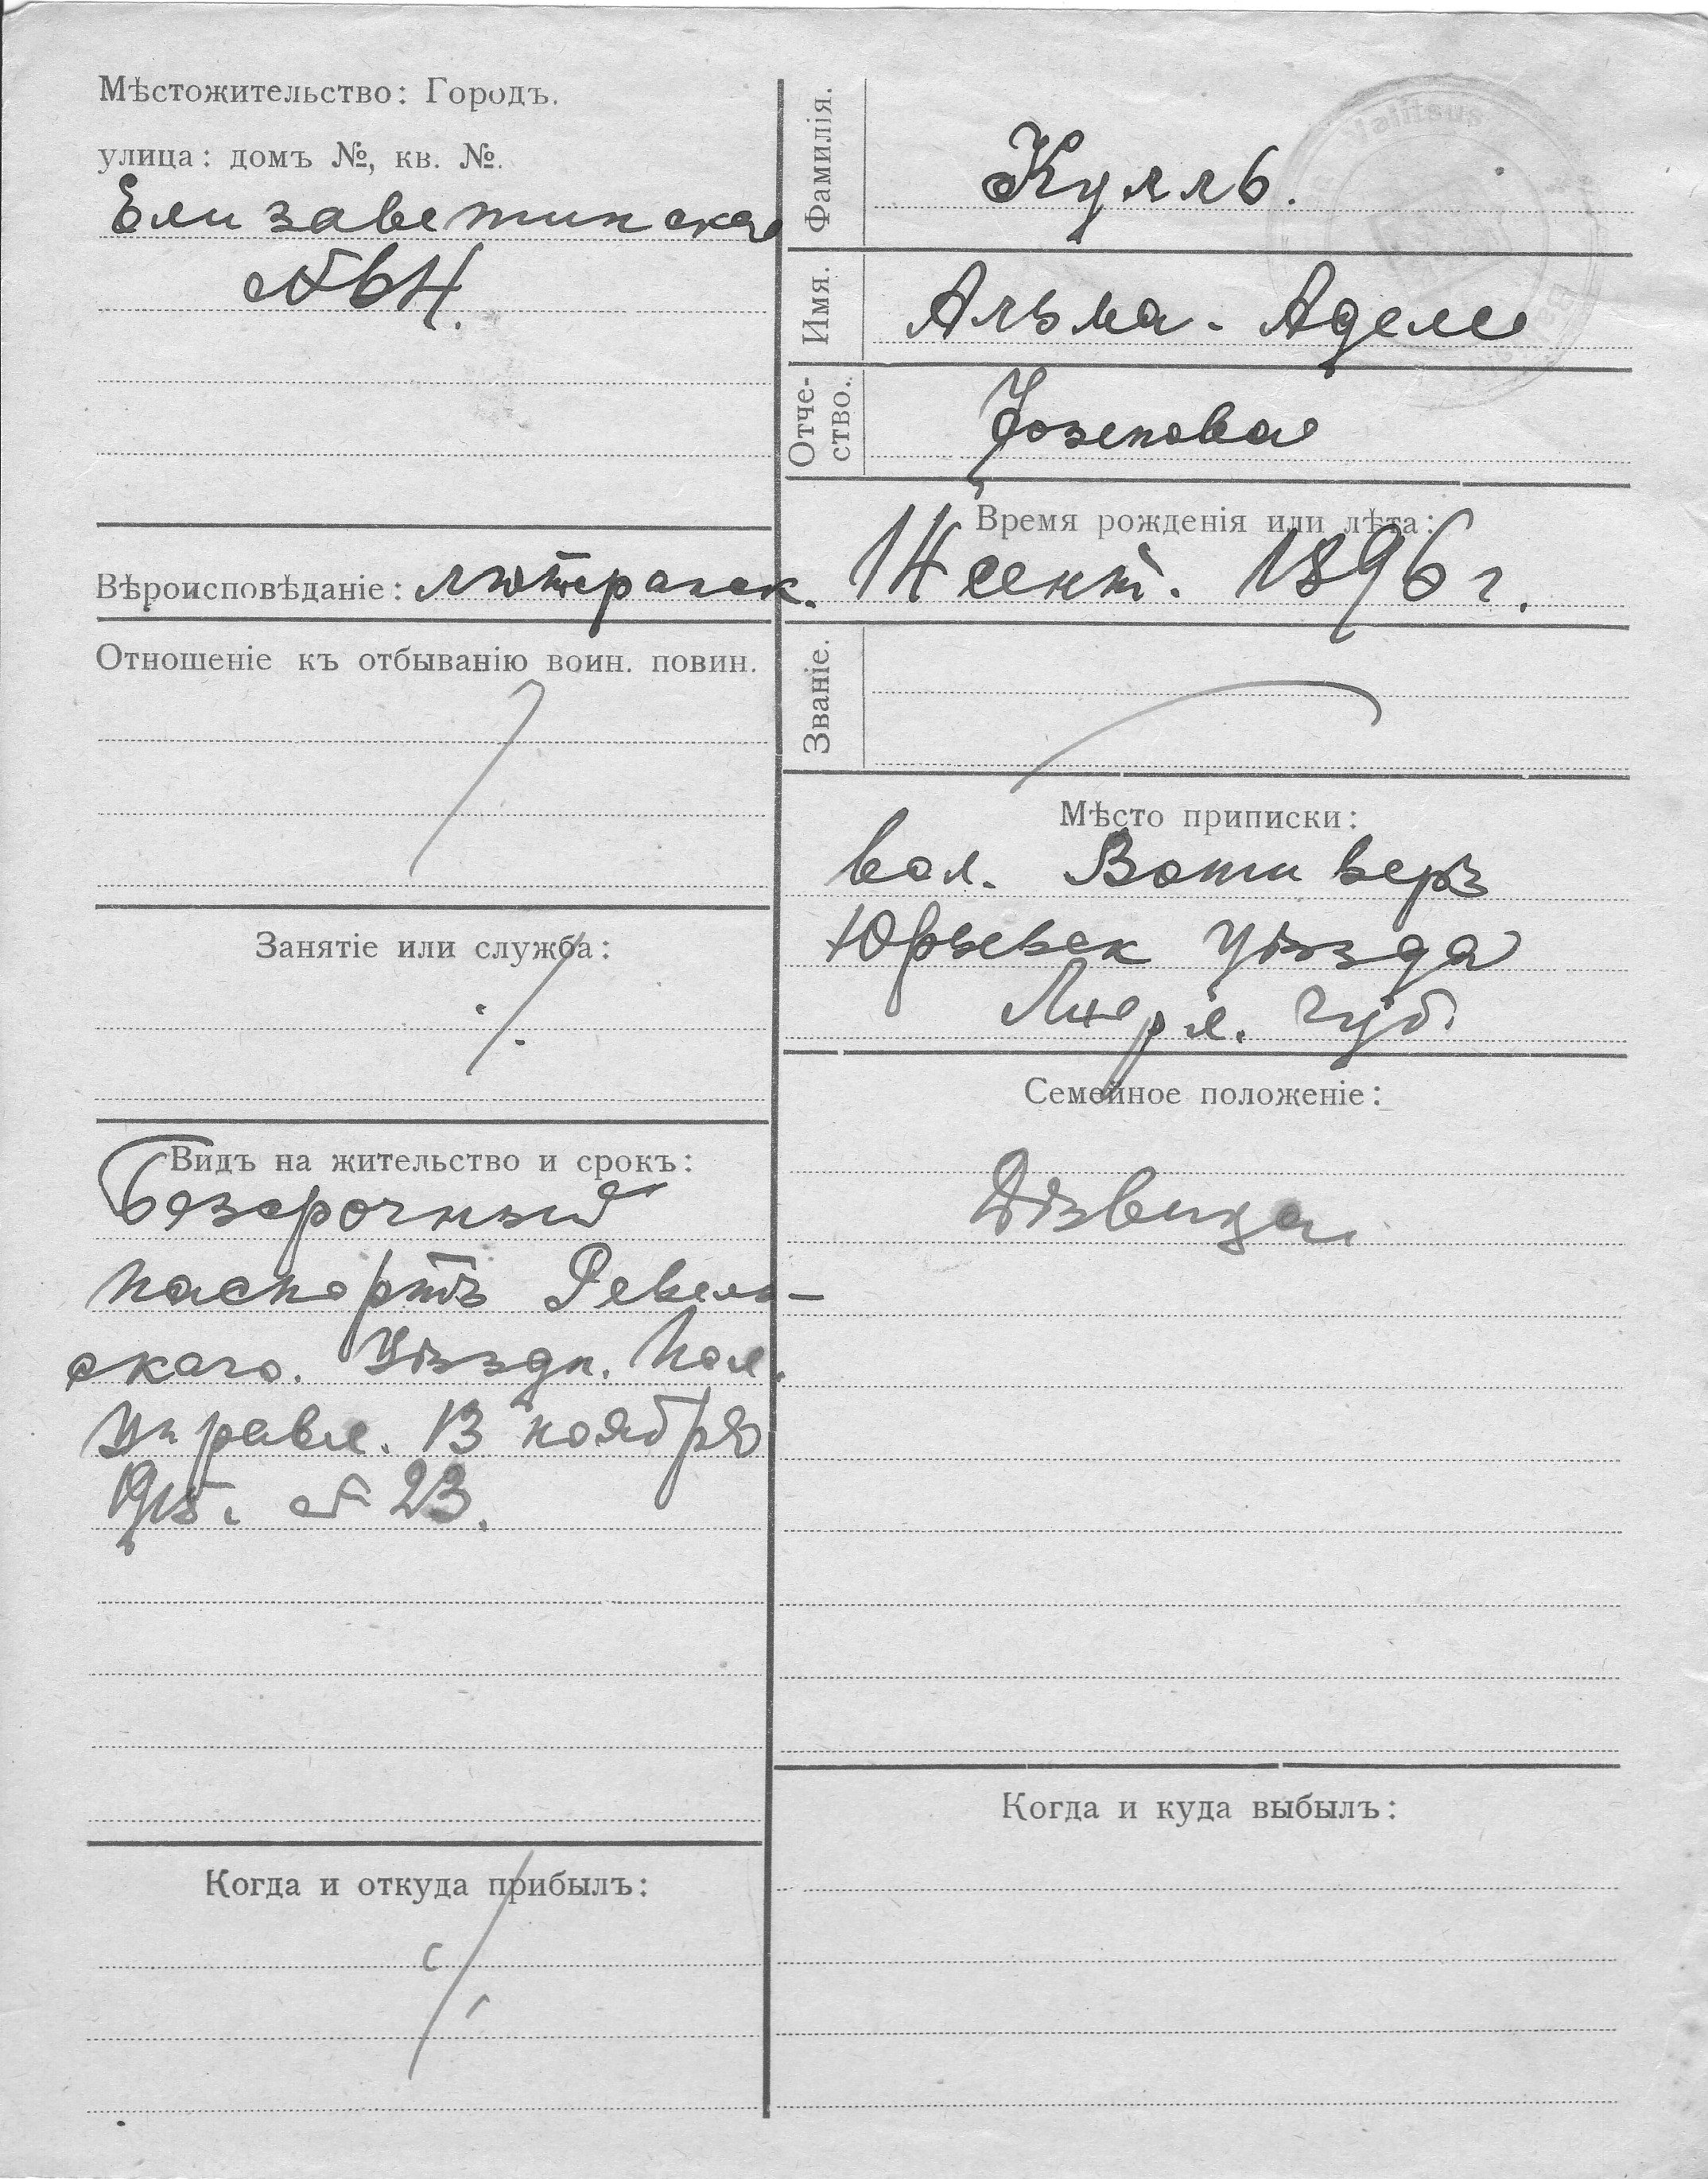 Мѣстожительство: Городъ.
улица: домъ №, кв. №.
Елизаветинская
№64.
Вѣроисповѣданіе: лютеранск.
Отношеніе къ отбыванію воин. повин.
Занятіе или служба:
Видъ на жительство и срокъ:
Безсрочный
паспортъ Ревель-
скаго. Уѣздн. Пол.
Управл. 13 ноября
1915. № 23.
Когда и откуда прибылъ:
Фамилія.
Кулль.
Имя.
Альма-Аделе
Отче-
ство.
Іозепова
Время рожденія или лѣта:
14 сент. 1896 г.
Званіе.
Мѣсто приписки:
вол. Вотиверъ
Юрьевск уѣзда
Лифл. губ.
Семейное положеніе:
Дѣвица.
Когда и куда выбылъ:
Valitsus